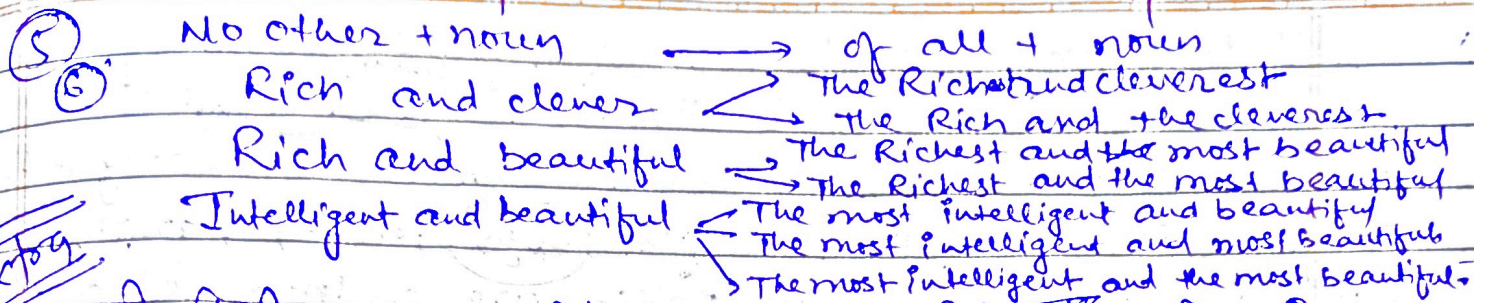 ⑤ No other + noun → of all + noun
⑥ Rich and clever → The Richest and cleverest
→ The Rich and the cleverest
Rich and beautiful → The Richest and the most beautiful
→ The Richest and the most beautiful
Intelligent and beautiful → The most intelligent and beautiful
→ The most intelligent and most beautiful
→ The most intelligent and the most beautiful.